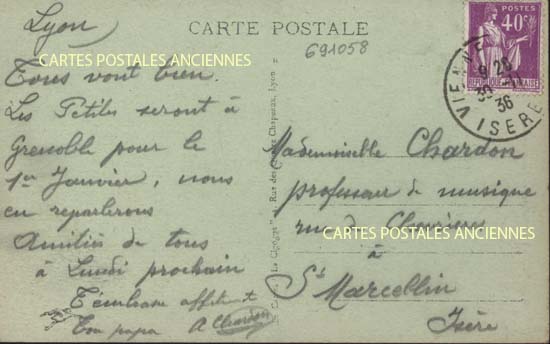 Lyon
CARTE POSTALE
691058
CARTES POSTALES ANCIENNES
Tous vont bien.
Les Petites seront à
Grenoble pour le
1er Janvier, nous
en reparlerons
Amitiés de tous
à Lundi prochain
T'embrasse affectt
Ton papa A Chardon
"La Cigogne" Rue des Chapeaux, Lyon
POSTES
40c
REPUBLIQUE
VIENNE
9 20
30
36
ISERE
Mademoiselle Chardon
professeur de musique
rue
CARTES POSTALES ANCIENNES
à
St Marcellin
Isère